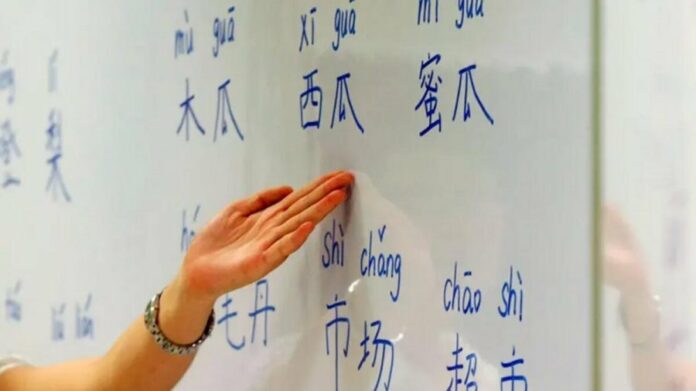 mù guā xī guā mì guā
梨 木瓜 西瓜 蜜瓜
shì chǎng chāo shì
毛丹 市场 超市
liú lián